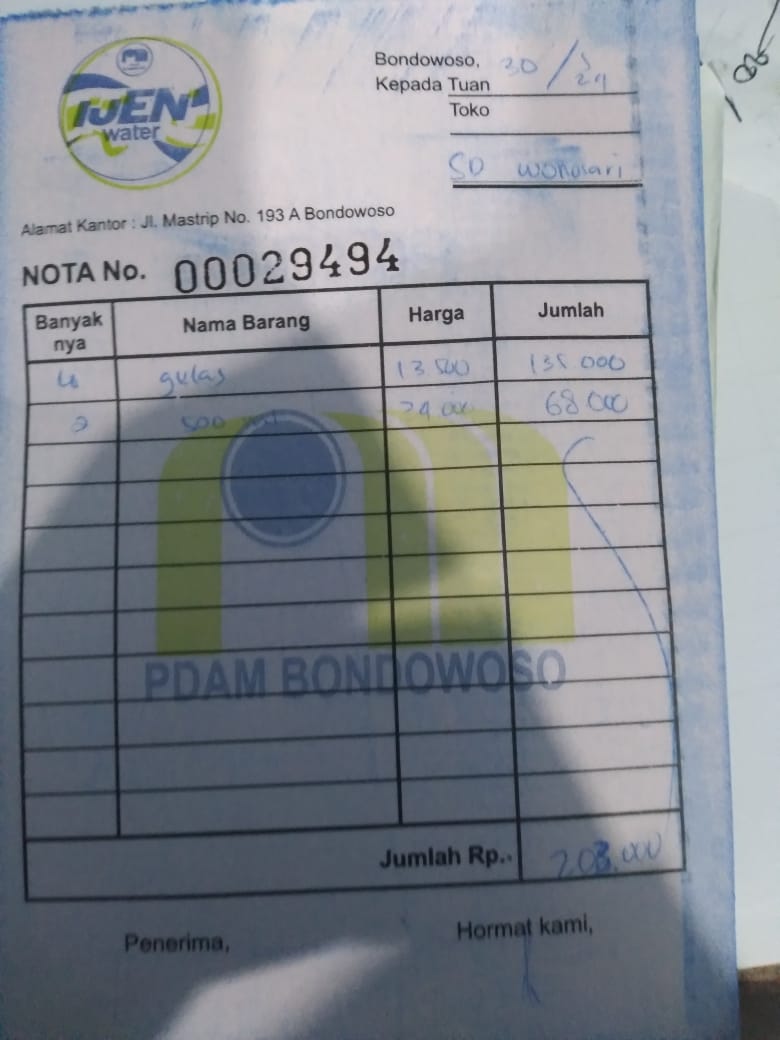 IJEN
water
Bondowoso, 30/5
24
Kepada Tuan
Toko
SD wonosari
Alamat Kantor : Jl. Mastrip No. 193 A Bondowoso
NOTA No. 00029494
Banyak nya Nama Barang Harga Jumlah
gulas 13 500 135 000
2 500 ml 68 000
PDAM BONDOWOSO
Jumlah Rp.. 203.000
Penerima, Hormat kami,